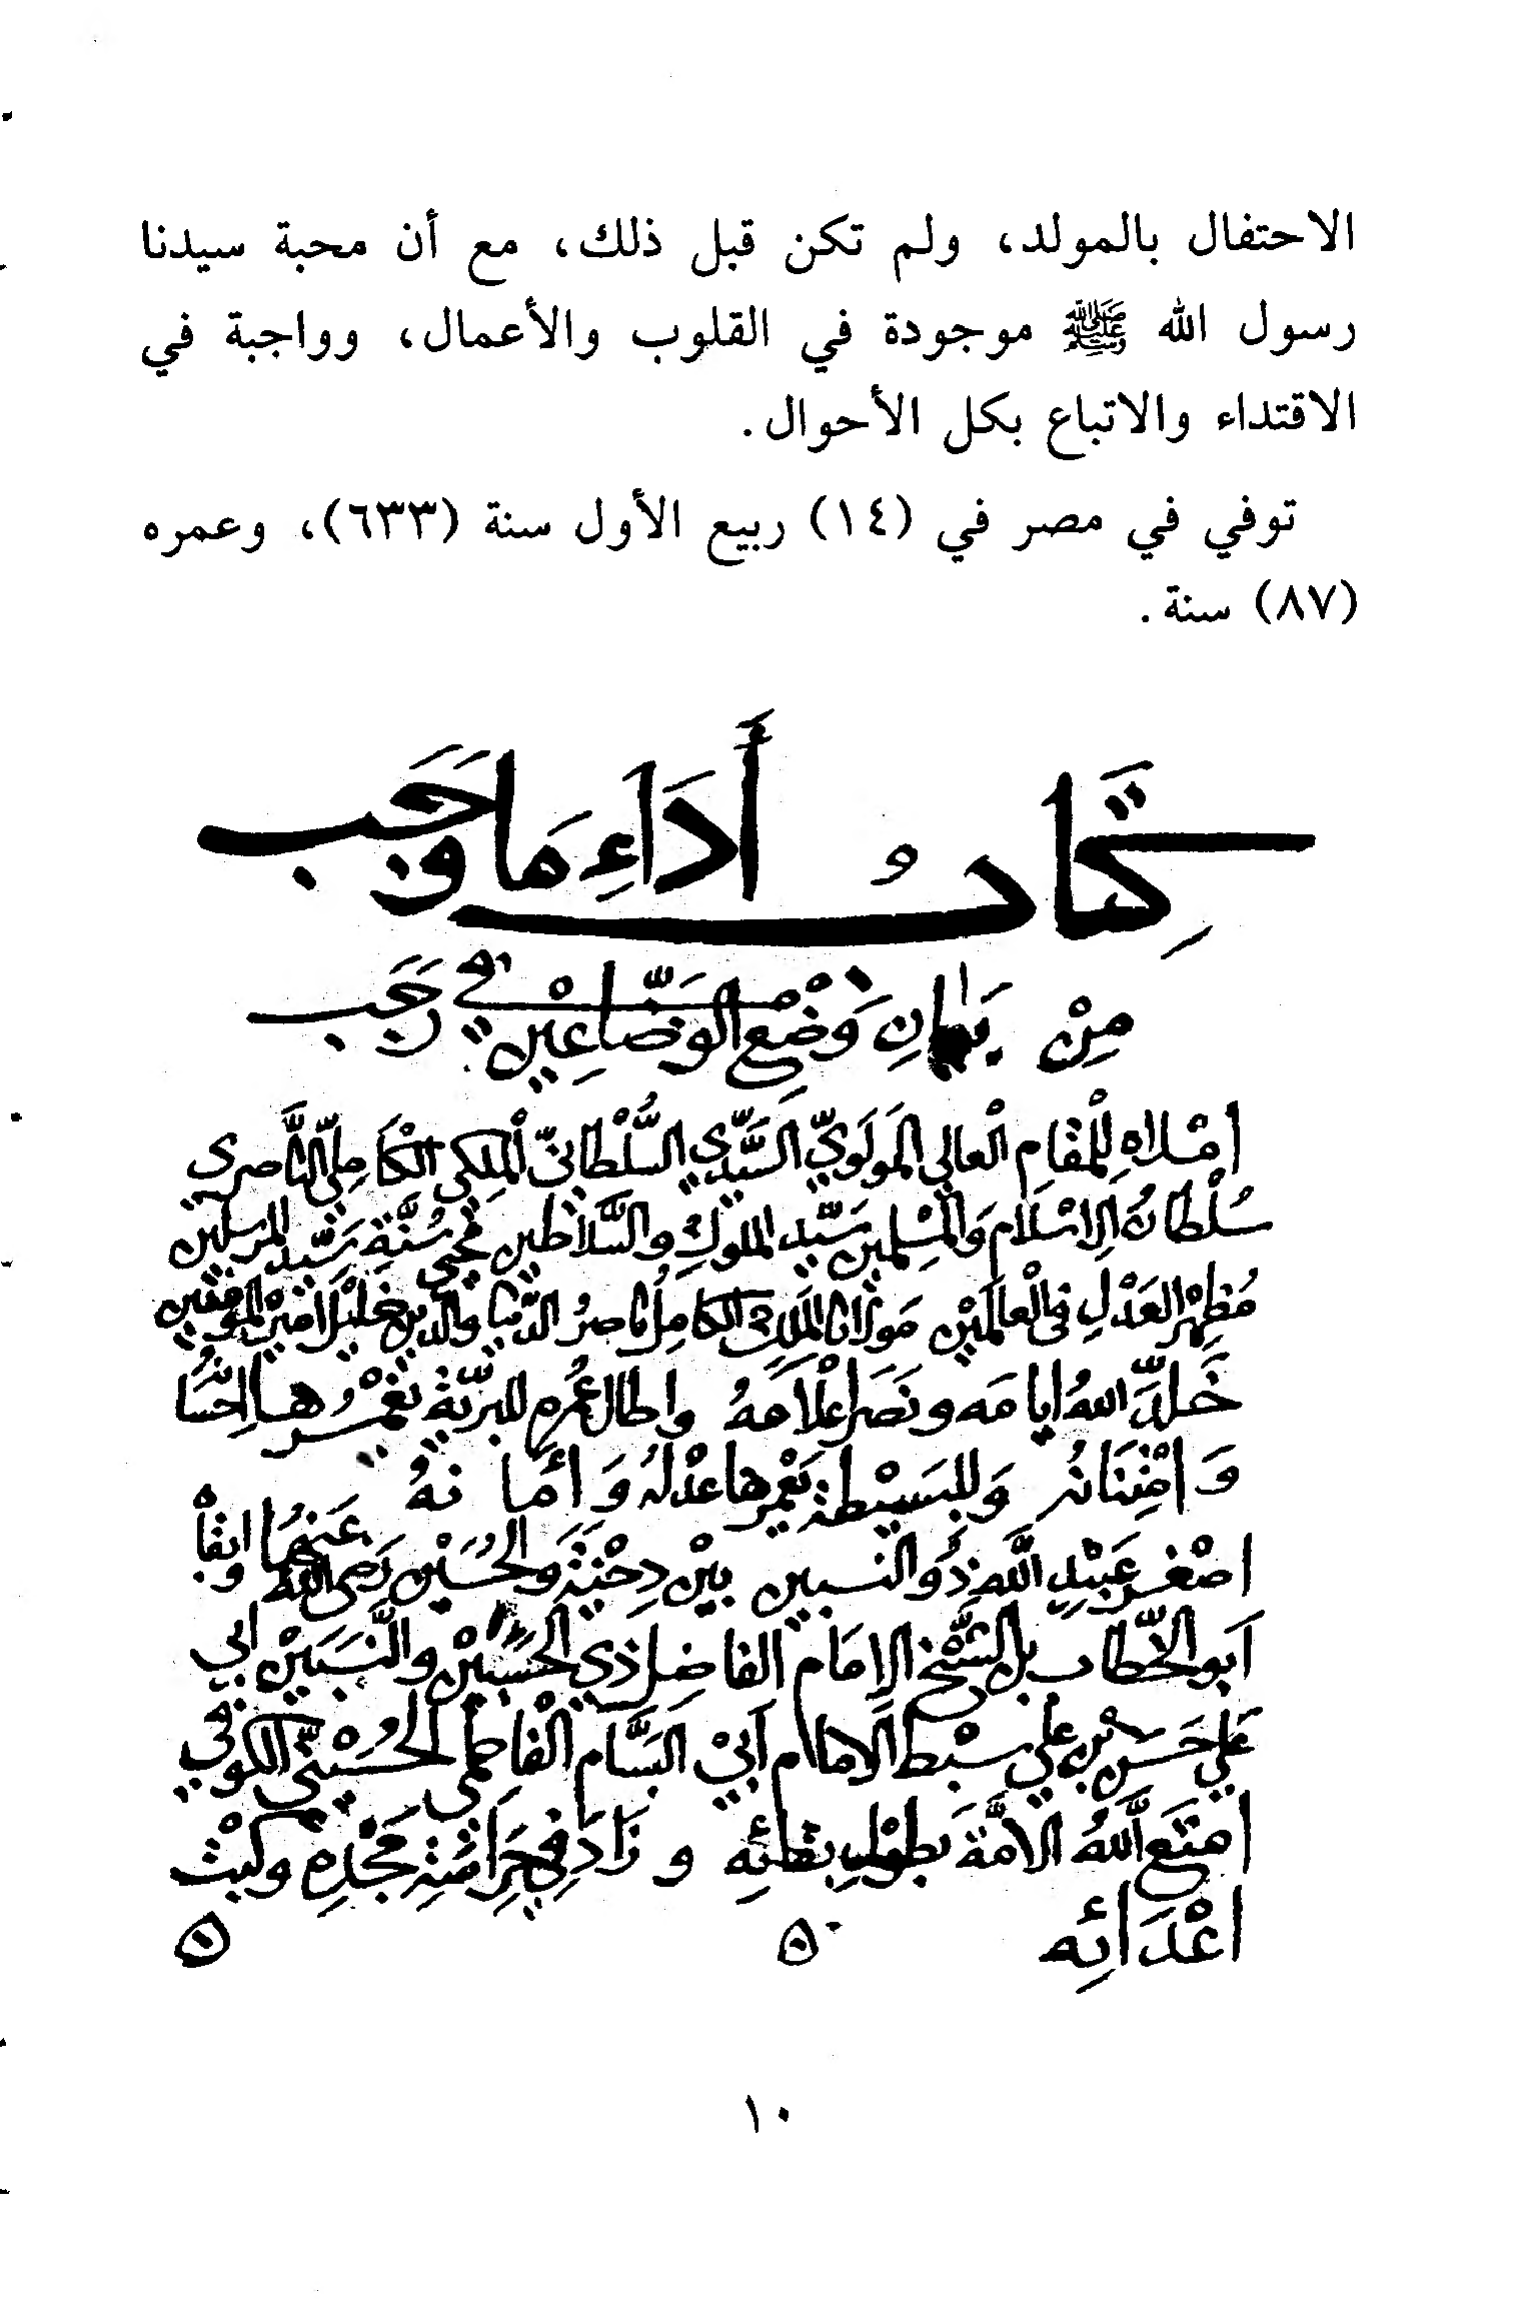 الاحتفال بالمولد، ولم تكن قبل ذلك، مع أن محبة سيدنا
رسول الله ﷺ موجودة في القلوب والأعمال، وواجبة في
الاقتداء والاتباع بكل الأحوال.
توفي في مصر في (١٤) ربيع الأول سنة (٦٣٣)، وعمره
(٨٧) سنة.
كِتَابُ أَدَاءِ مَا وَجَب
مِنْ بَيَانِ وَضْعِ الوَضَّاعِيْنَ في رَجَب
امْلاهِ لِلْمقَامِ الْعالي المَولَوِيِّ السَّيِّدِي السُّلْطانيّ الْملِكي الْكَامِليّ النَّاصِري
سُلْطَانُ الاسْلَام وَالمسْلِمين سَيِّد الملوك والسَّلاطين مُحْيِي سُنَّةِ سَيِّد المرسلين
مُظهِرْ العَدْلِ في الْعالَميْن مَولانا المَلِك الكامِلُ ناصِرُ الدُّنيا والدين خليْل اميْر المؤمنين
خَلَّدَ اللهُ ايامَه ونَصَرَ اعْلامَهُ واطال عُمره للبريّة يَغْمُرُها احْسَا
وَامْتِنَانُه وَللبَسِيْطة يَعْمُرها عدْلهُ وَأمَانهُ
اصْغر عَبيْدِ اللَّهِ ذُو النسبين بيْن دِحْيَةَ وَالحُسَيْن رَضي الله عَنهُما
ابو الخطاب بن الشَّيْخ الإمَام الفاضِل ذي الحسَبيْن والنَّسَبَيْن ابي
عَلي حَسَن بْن علي سِبْط الامام اَبيْ البَسَّام الْفاطمي الحُسَيْنيّ الكوفي
امتَع اللَّهُ الامَّةَ بطوْلِ بقَائِه وزَادَ في حِرَاسَةِ مَجْدِه وكَبْت
اعْدَائِه
١٠